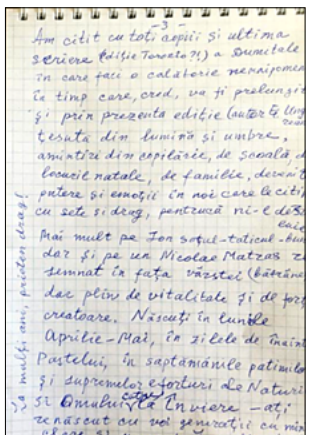 -3-
Am citit cu toții copiii și ultima
scriere (ediție Toronto?!) a Dumitale
în care faci o călătorie nemaipomen
în timp care, cred, va fi prelungit
și prin prezenta ediție (autor
țesută din lumină și umbre,
amintiri din copilărie, de școală, d
locurile natale, de familie, devenit
putere și emoții în noi care le citi
cu sete și drag, pentrucă ni-l
Mai mult pe Ion soțul-tăticul-bun
dar și pe un Nicolae Matzas re
semnat în fața vârstei (bătrâne
dar plin de vitalitate și de forț
creatoare. Născuți în lunile
Aprilie-Mai, în zilele de înaint
Paștelui, în săptămânile patimilo
și supremelor eforturi ale Naturi
și Omului către Înviere - ați
renăscut cu voi generații cu
La mulți ani, prieten drag!